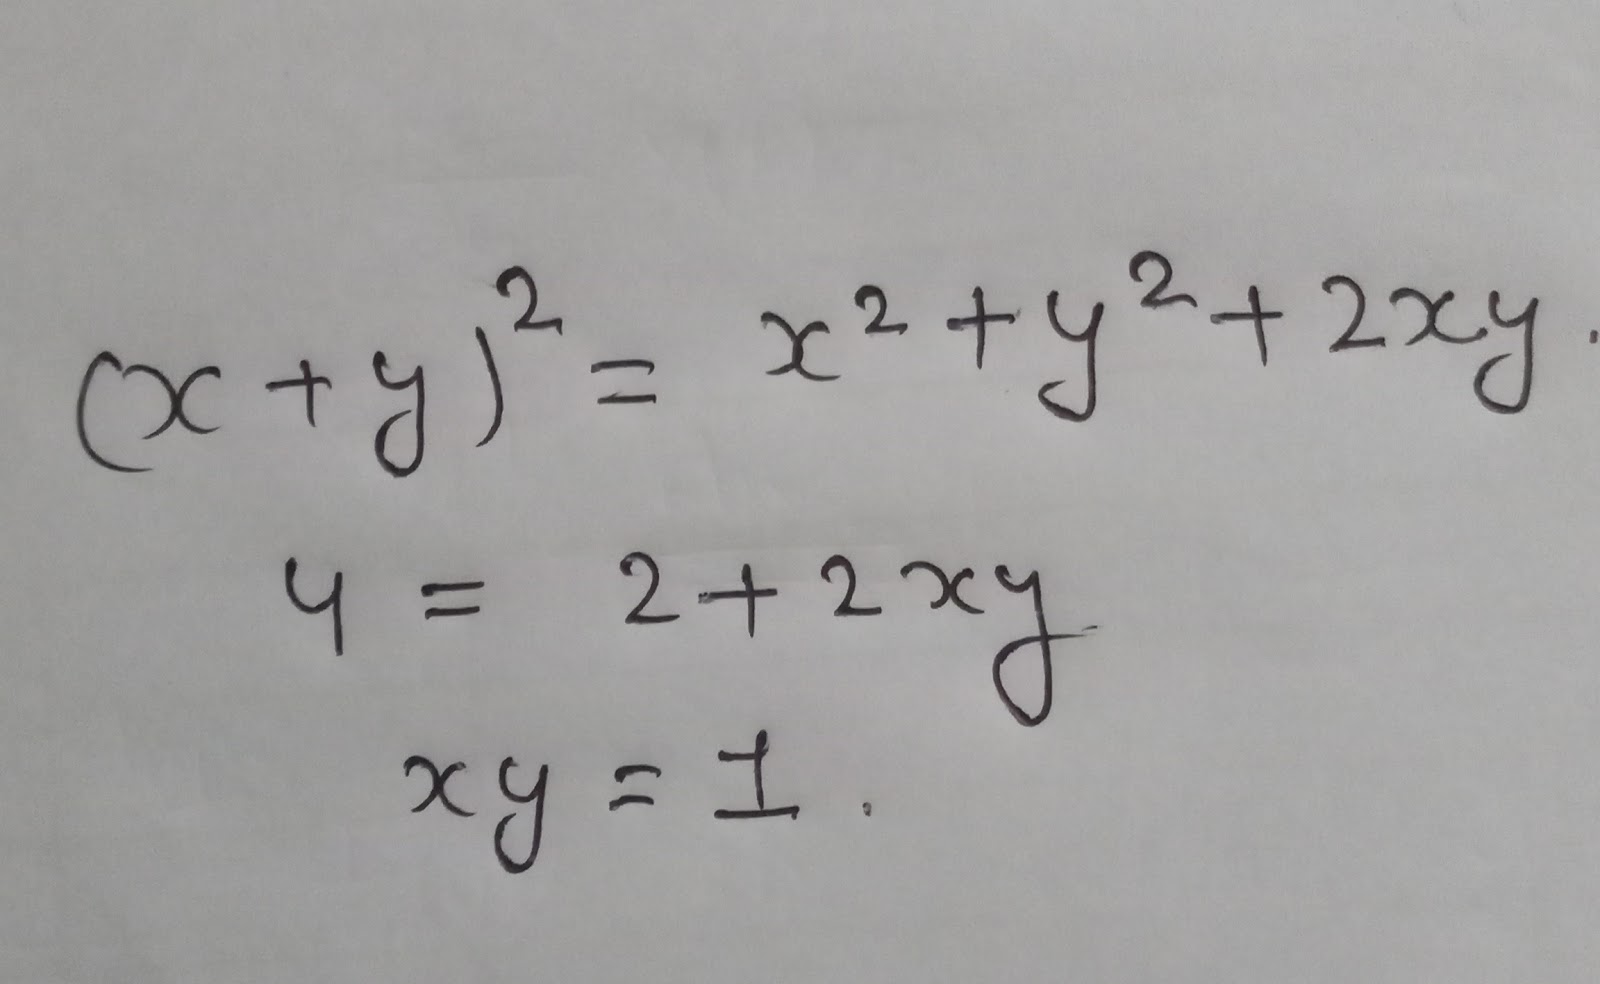 (x+y)² = x² + y² + 2xy.
4 = 2 + 2xy
xy = 1.